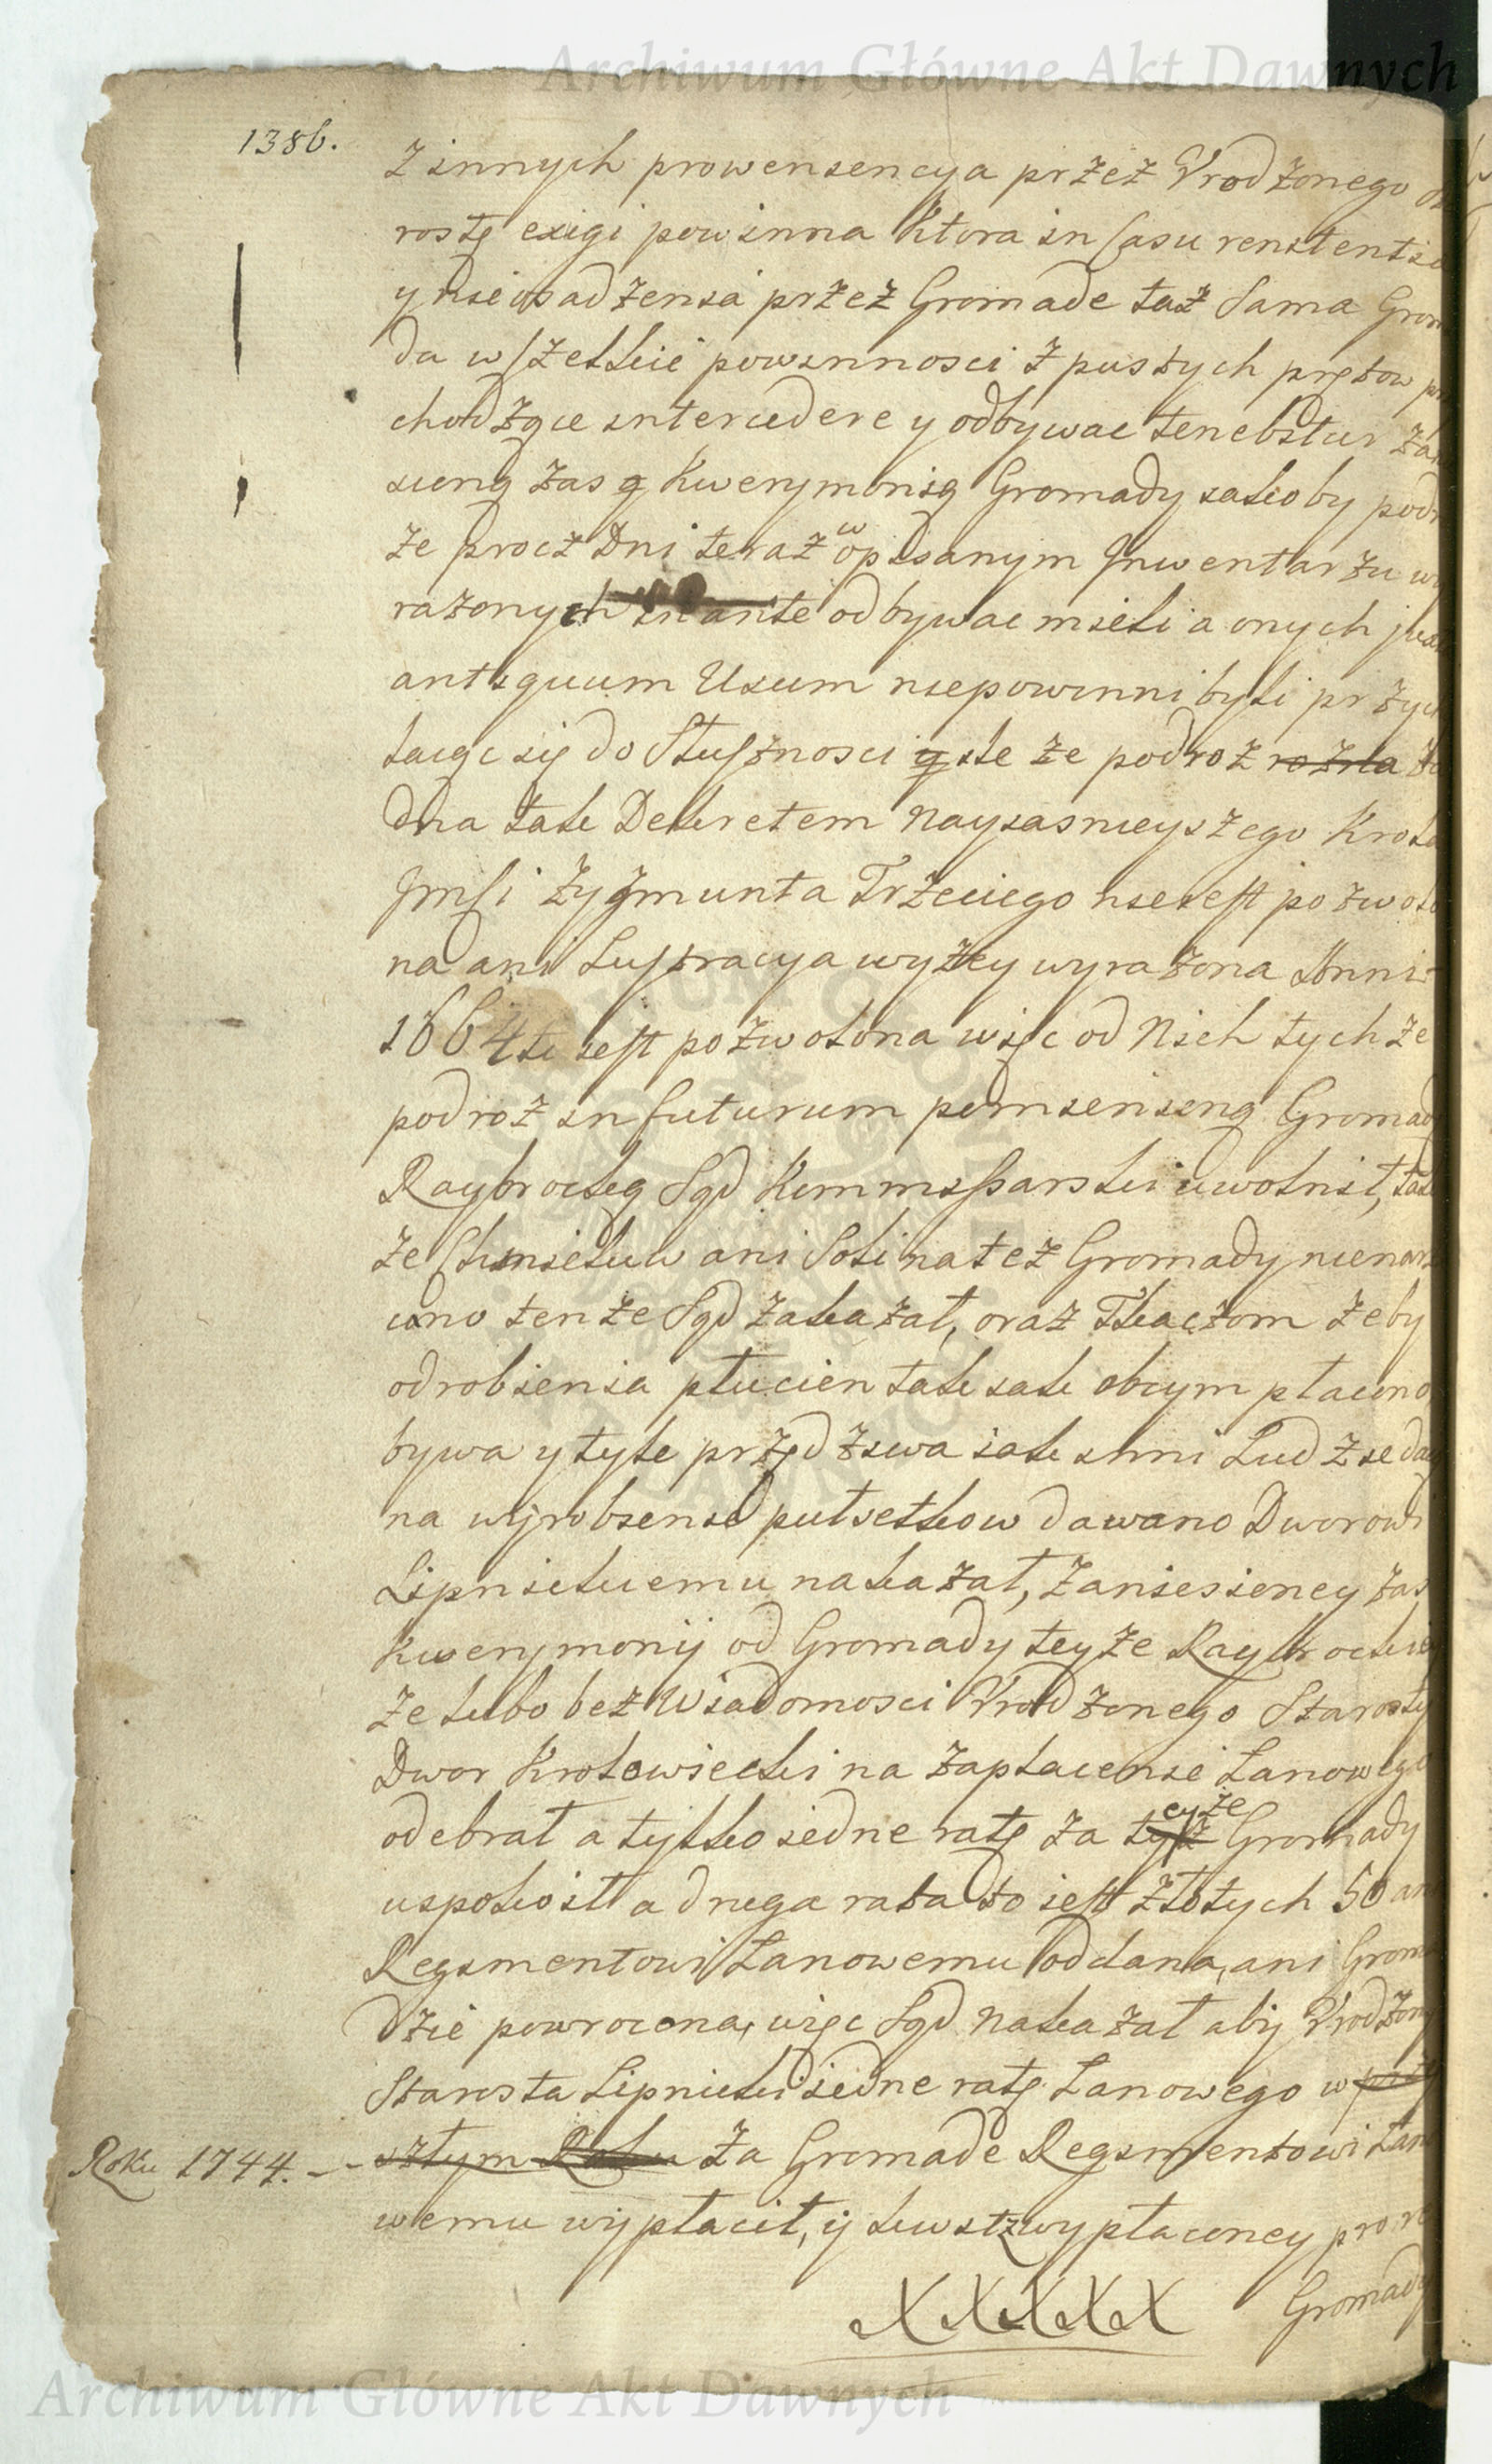 Archiwum Główne Akt Dawnych
1386.
z innych proweniencya przez Urodzonego
rostę exigi powinna ktora in Casu renitentie
y nieosadzenia przez Gromade taż Sama Grom
da wszelkie powinnosci z pustych prętow
chodzące intercedere y odbywac tenebitur
sieną zas Kwerymonią Gromady iakoby podr
że procz Dni teraz w opisanym Jnwentarzu wy
rażonych in ante odbywac mieli a onych
antiquum Usum niepowinni byli przych
laiąc się do Słuszności iż te że podroż rożna
dna tak Dekretem Nayiasnieyszego Krola
Jmści Zygmunta Trzeciego nieiest pozwolo
na ani Lustracya wyżey wyrażona Anni
1664te iest pozwolona więc od Nich tychże
podroż in futurum pomienioną Gromad
Raybrocką Sąd Kommissarski uwolnił, tak
że Chmielu w ani Soli na też Gromady nienarz
cano tenże Sąd zakazał, oraz Tkaczom żeby
od robienia płucien tak iak obcym płacono
bywa y tyle przędziwa iak inni Ludzie daią
na wyrobienie pułsetkow dawano Dworowi
Lipnickiemu nakazał, zaniesioney zas
Kwerymonij od Gromady teyże Raybrockiey
że lubo bez Wiadomosci Urodzonego Starosty
Dwor Krolowiecki na zapłacenie Łanowego
odebrał a tylko iedne ratę za teyże Gromady
uspokoił a druga rata to iest złotych 50 ani
Regimentowi Łanowemu oddana, ani Groma
dzie powrocona, więc Sąd nakazał aby Urodzony
Starosta Lipnicki iedne ratę Łanowego w przy
szłym Roku za Gromade Regimentowi Łano
Roku 1744. - -
wemu wypłacił, y kwit z wypłaconey pro re
XXXXX Gromady
Archiwum Główne Akt Dawnych